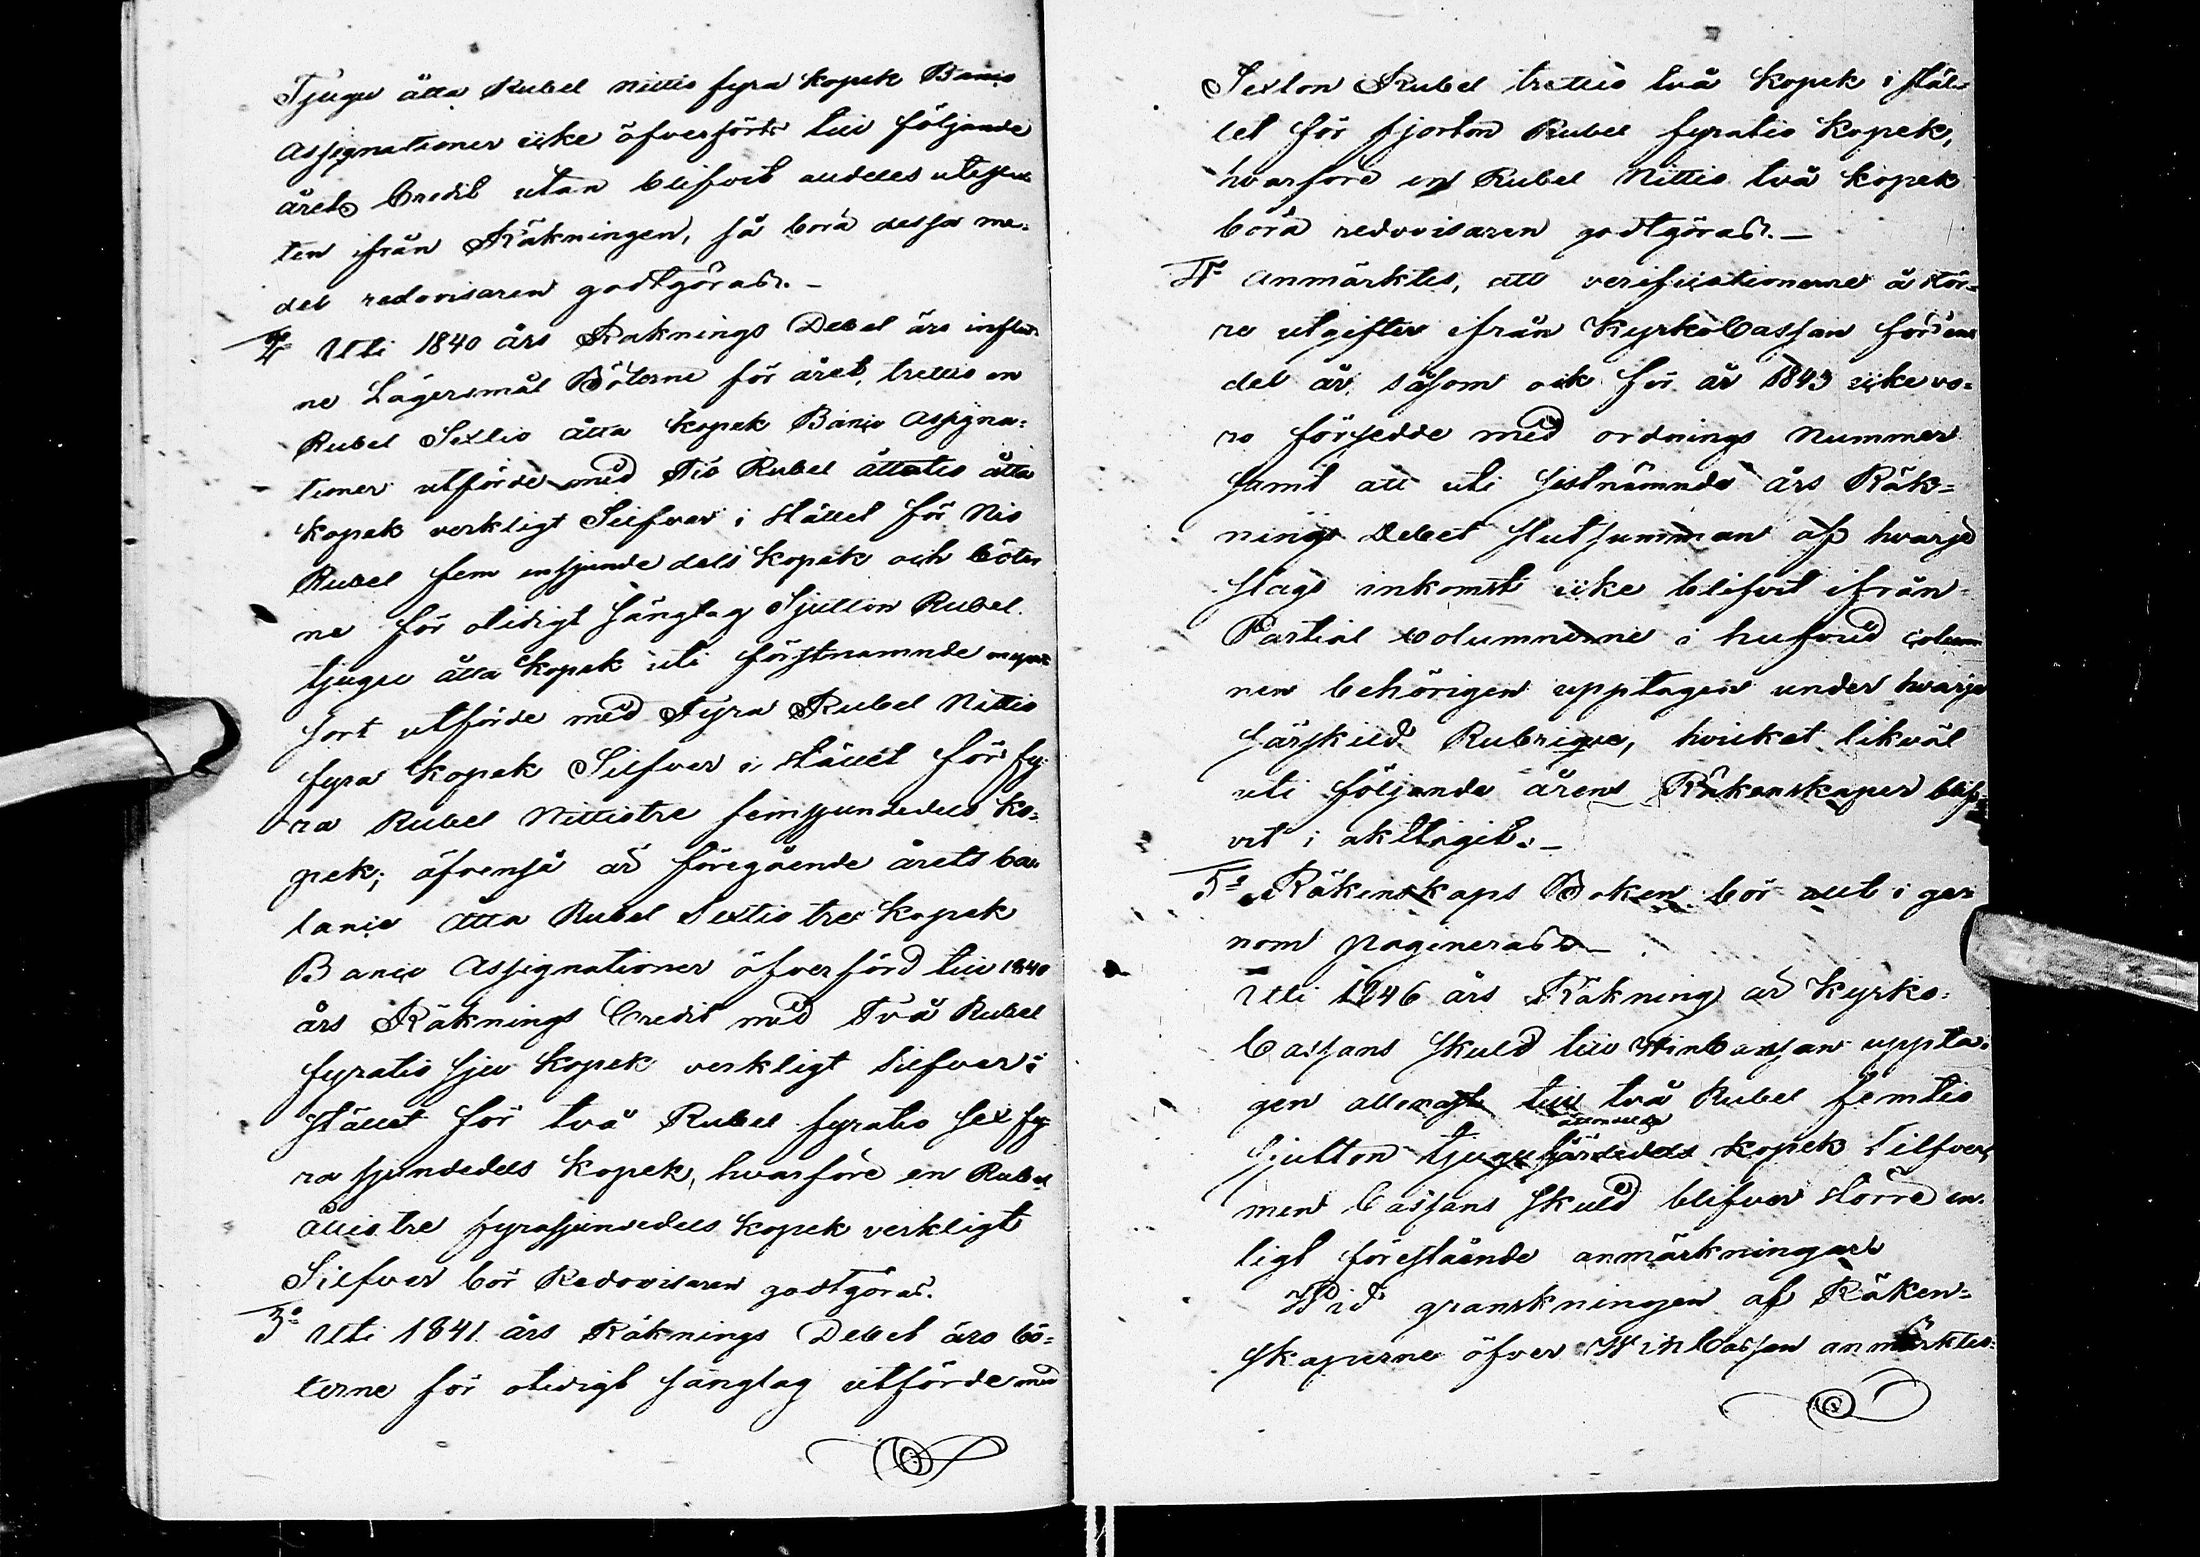 Tjugu åtta Rubel Nittio fyra kopek Banco
Assignationer icke öfverförts till följande
årets Credit utan blifvit alldeles uteslu-
ten ifrån Räkningen, så böra dessa me-
del redovisaren godtgöras. –
2º Uti 1840 års Räknings Debet äro influt-
ne Lägersmål Böterne för året, trettio en
Rubel Sextio åtta kopek Banco Assigna-
tioner utförde med Tio Rubel åttatio åtta
kopek verkligt Silfver i stället för Nio
Rubel fem en sjundedels kopek och böter-
ne för otidigt sänglag Sjutton Rubel
tjugu åtta kopek uti förstnämnde mynt
sort utförde med Fyra Rubel Nittio
fyra kopek Silfver i stället för fy-
ra Rubel Nittiotre femsjundedels ko-
pek; äfvenså är föregående årets ba-
lance åtta Rubel Sextio tre kopek
Banco Assignationer öfverförd till 1840
års Räknings Credit med Två Rubel
fyratio sju kopek verkligt Silfver i
stället för två Rubel fyratio sex fy-
ra sjundedels kopek, hvarföre en Rubel
åttiotre fyrasjundedels kopek verkligt
Silfver bör Redovisaren godtgöras.
3º Uti 1841 års Räknings Debet äro bö-
terne för otidigt sänglag utförde med
Sexton Rubel trettio två kopek i stäl-
let för fjorton Rubel fyratio kopek,
hvarföre en Rubel Nittio två kopek
böra redovisaren godtgöras. –
4º Anmärktes, att verificationerne å stör-
re utgifter ifrån KyrkoCassan för
det år, såsom ock för år 1843 icke vo-
ro försedde med ordnings Nummer
samt att uti sistnämnde års Räk-
nings Debet slutsumman af hvarje
slags inkomst icke blifvit ifrån
Partial Columnerne i hufvud Colum
nen behörigen upptagen under hvarje
särskild Rubrique, hvilket likväl
uti följande årens Räkenskaper blif-
vit i akttagit. –
5º Räkenskaps Boken bör allt i ge-
nom pagineras. –
Uti 1846 års Räkning är Kyrko-
Cassans skuld till WinCassan uppta-
gen allenast till två Rubel femtio
åttondels
sjutton tjugu kopek Silfver,
men Cassans skuld blifver större en-
ligt föreslående anmärkningar
Wid granskningen af Räken-
skaperne öfver WinCassan anmärktes: